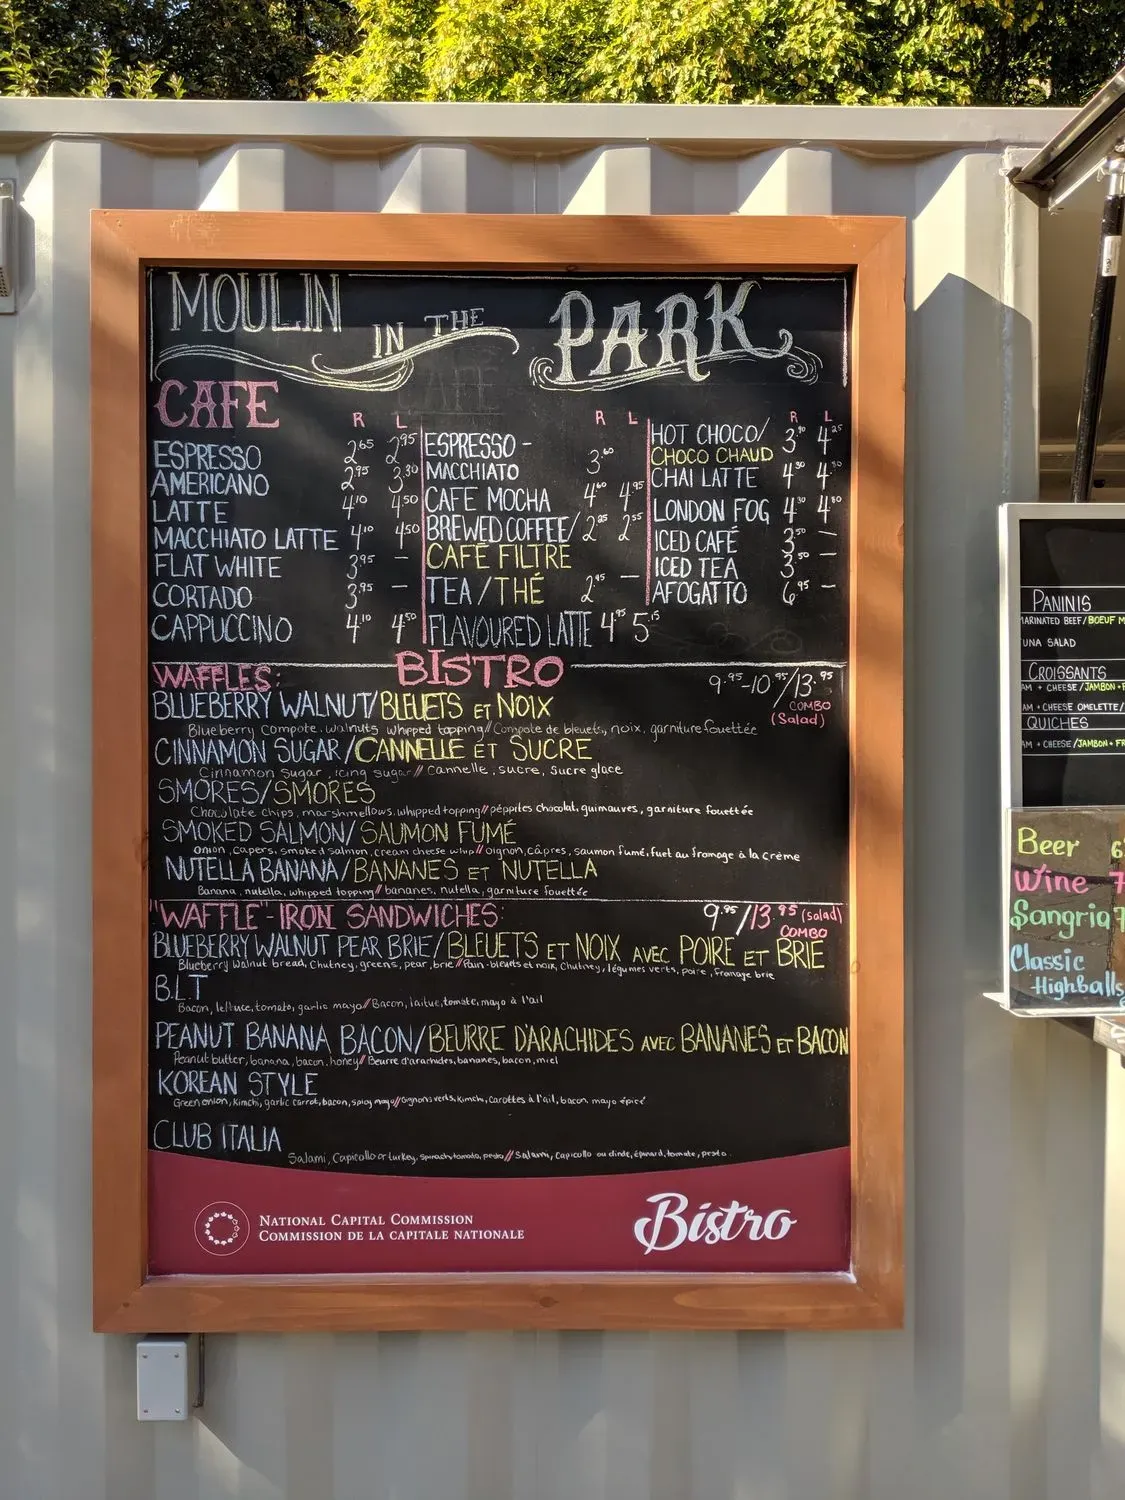 MOULIN IN THE PARK
CAFE
R L
ESPRESSO 2.65 2.95
AMERICANO 2.95 3.30
LATTE 4.10 4.50
MACCHIATO LATTE 4.10 4.50
FLAT WHITE 3.95 —
CORTADO 3.95 —
CAPPUCCINO 4.10 4.50
R L
ESPRESSO -
MACCHIATO 3.60
CAFE MOCHA 4.60 4.95
BREWED COFFEE/ 2.25 2.55
CAFÉ FILTRE
TEA/THÉ 2.45 —
FLAVOURED LATTE 4.95 5.15
R L
HOT CHOCO/ 3.90 4.25
CHOCO CHAUD
CHAI LATTE 4.30 4.80
LONDON FOG 4.30 4.80
ICED CAFÉ 3.50 —
ICED TEA 3.50
AFOGATTO 6.95 —
BISTRO
WAFFLES: 9.95-10.95/13.95
COMBO
(Salad)
BLUEBERRY WALNUT/BLEUETS ET NOIX
Blueberry compote, walnuts whipped topping//Compote de bleuets, noix, garniture fouettée
CINNAMON SUGAR/CANNELLE ET SUCRE
Cinnamon sugar, icing sugar//Cannelle, sucre, sucre glace
SMORES/SMORES
Chocolate chips, marshmellows, whipped topping//pépites chocolat, guimauves, garniture fouettée
SMOKED SALMON/SAUMON FUMÉ
onion, capers, smoked salmon, cream cheese whip//oignon, câpres, saumon fumé, fuet au fromage à la crème
NUTELLA BANANA/BANANES ET NUTELLA
Banana, nutella, whipped topping//bananes, nutella, garniture fouettée
"WAFFLE"-IRON SANDWICHES: 9.95/13.95 (salad)
COMBO
BLUEBERRY WALNUT PEAR BRIE/BLEUETS ET NOIX AVEC POIRE ET BRIE
Blueberry Walnut bread, Chutney, greens, pear, brie//Pain bleuets et noix, Chutney, légumes verts, poire, fromage brie
B.L.T
Bacon, lettuce, tomato, garlic mayo//Bacon, laitue, tomate, mayo à l'ail
PEANUT BANANA BACON/BEURRE D'ARACHIDES AVEC BANANES ET BACON
Peanut butter, banana, bacon, honey//Beurre d'arachides, bananes, bacon, miel
KOREAN STYLE
Green onion, kimchi, garlic carrot, bacon, spicy mayo//oignons verts, kimchi, carottes à l'ail, bacon mayo épicé
CLUB ITALIA
Salami, Capicollo or turkey, spinach, tomato, pesto//Salami, capicollo ou dinde, épinard, tomate, pesto
NATIONAL CAPITAL COMMISSION
COMMISSION DE LA CAPITALE NATIONALE
Bistro
PANINIS
MARINATED BEEF/BOEUF M
TUNA SALAD
CROISSANTS
AM + CHEESE/JAMBON+F
AM + CHEESE OMELETTE/
QUICHES
AM + CHEESE/JAMBON+FR
Beer 6
Wine 7
Sangria 7
Classic
Highballs